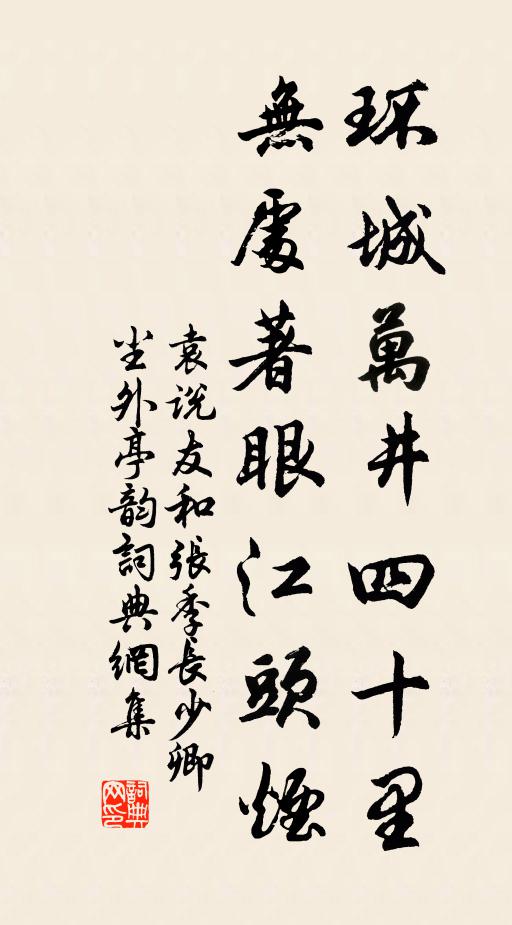 環城萬井四十里
無處著眼江頭煙
袁说友和張季長少卿
尘外亭韵詞典網集
詞典网印